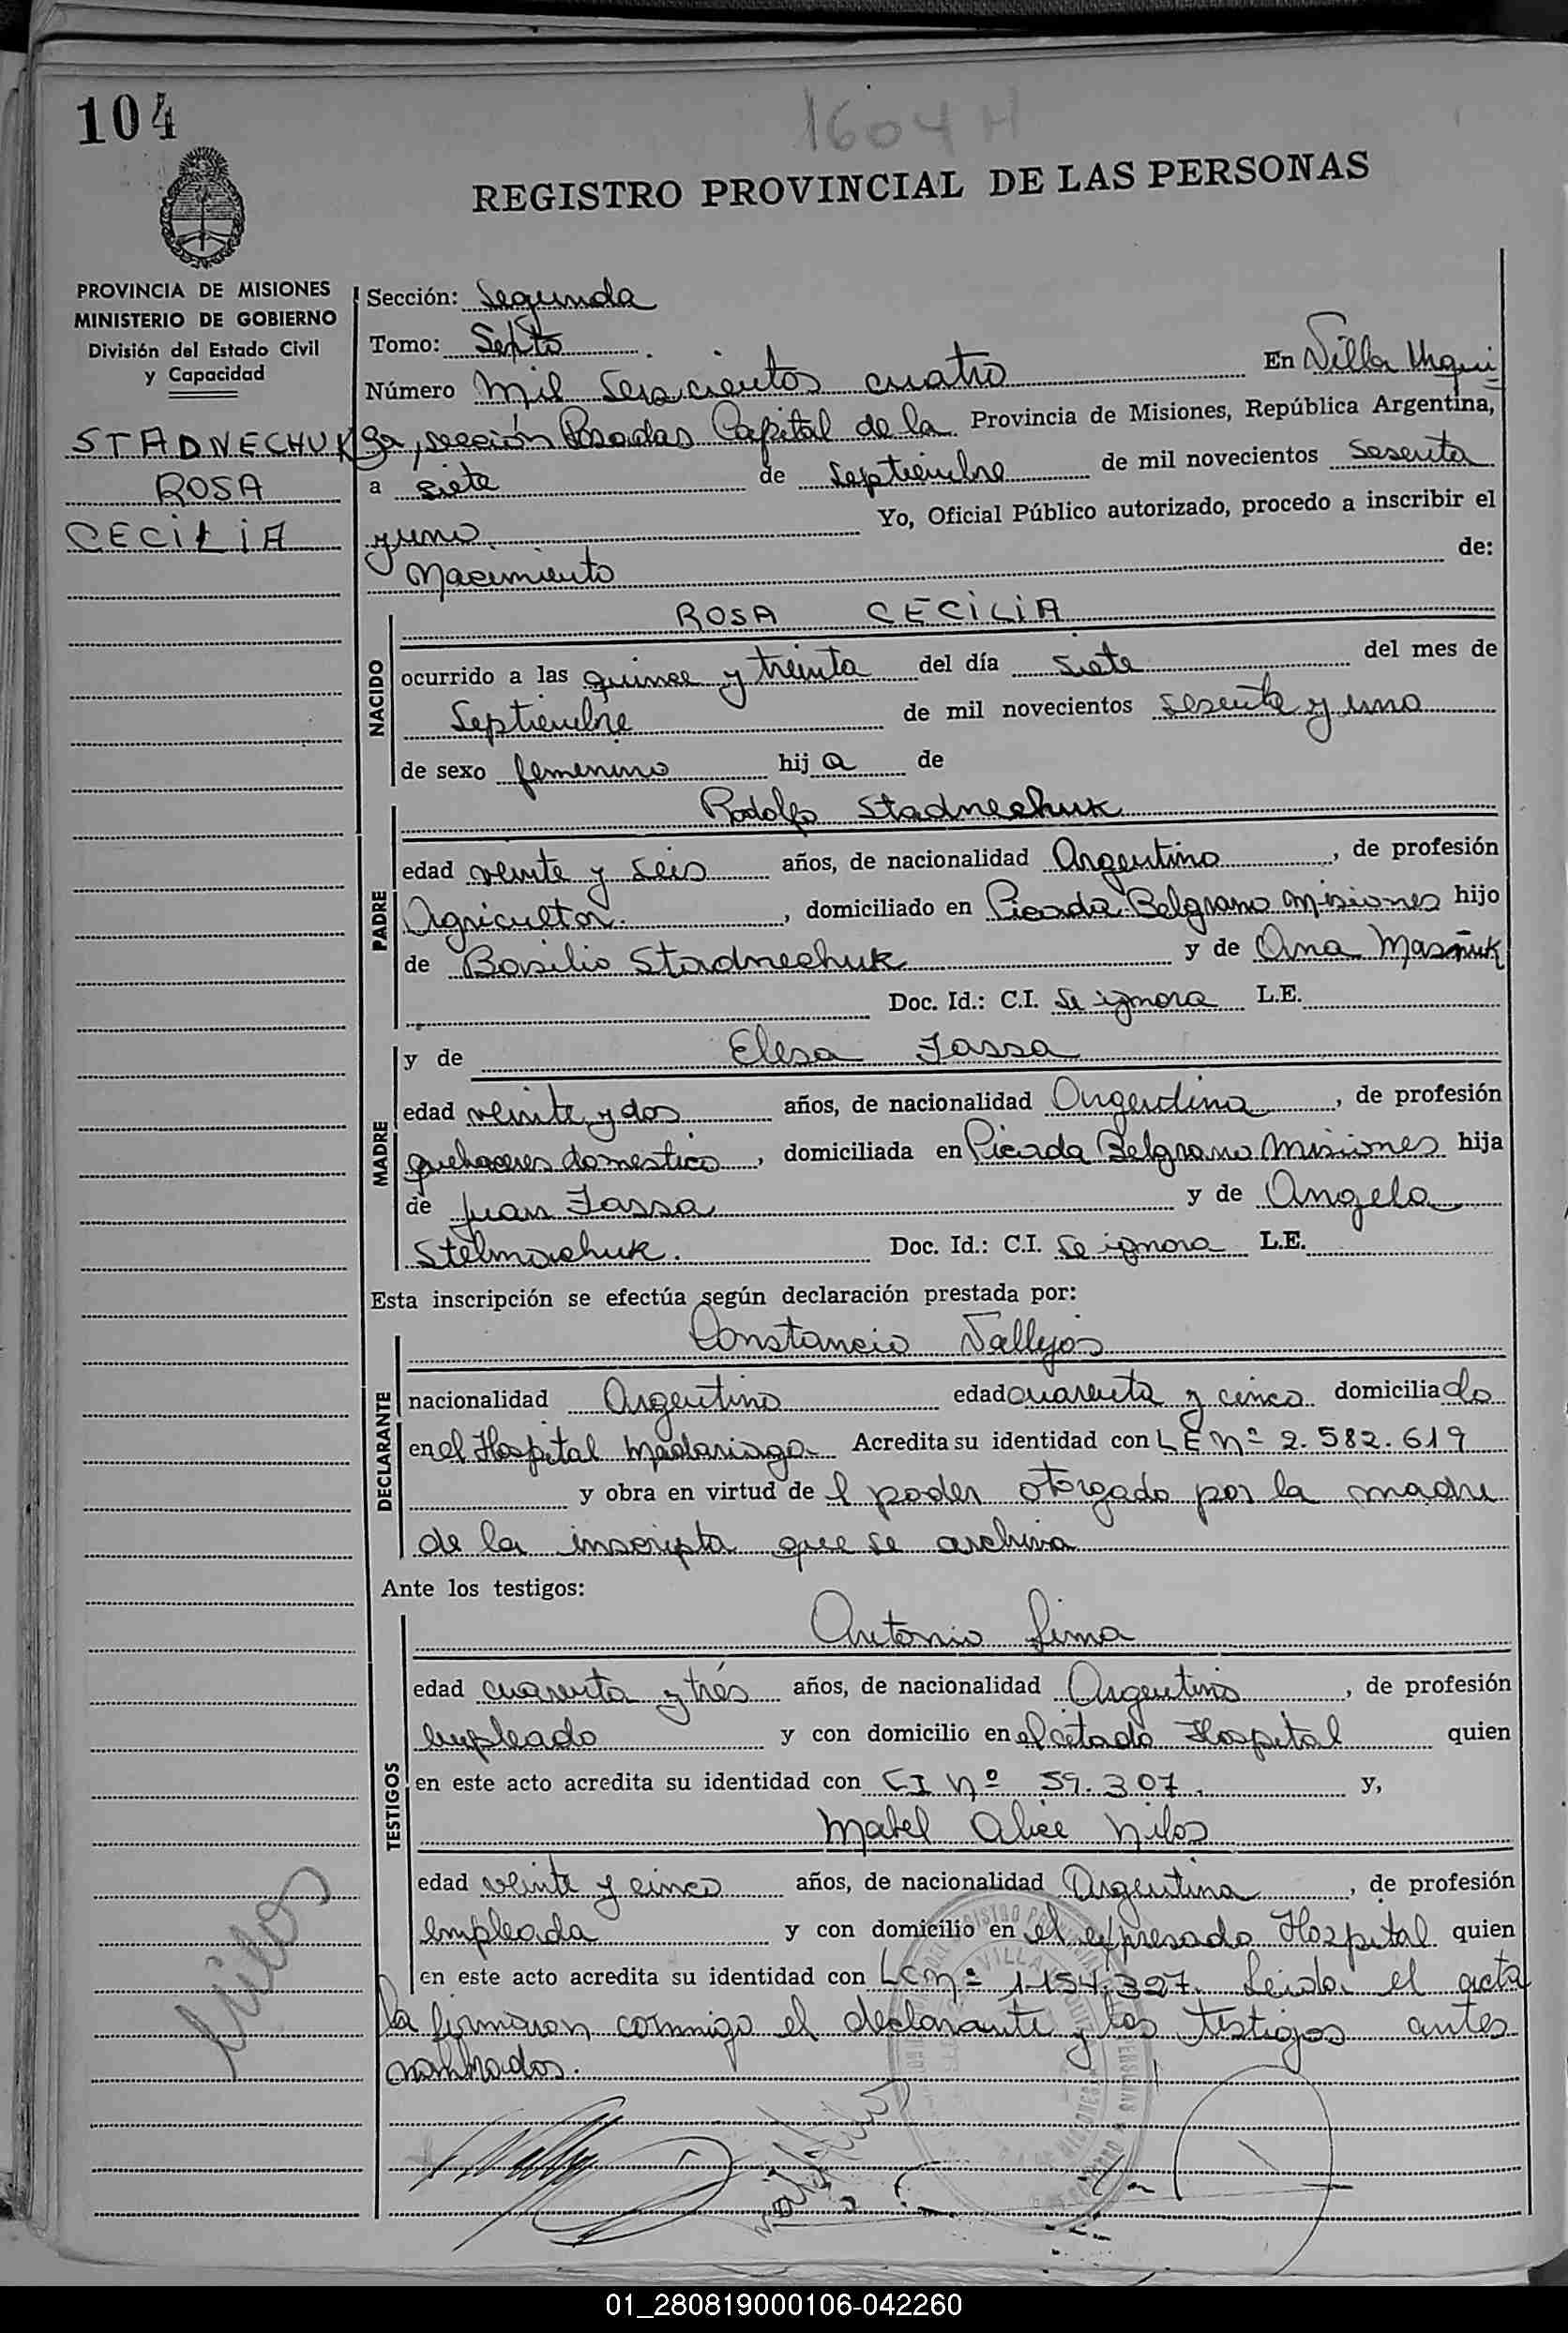 104
1604 H
REGISTRO PROVINCIAL DE LAS PERSONAS
PROVINCIA DE MISIONES
MINISTERIO DE GOBIERNO
División del Estado Civil
y Capacidad
STADNECHUK
ROSA
CECILIA
Sección: Segunda
Tomo: Septo
Número Mil Seiscientos cuatro En Villa Urqui
za, sección Posadas Capital de la Provincia de Misiones, República Argentina,
a siete de Septiembre de mil novecientos Sesenta
y uno. Yo, Oficial Público autorizado, procedo a inscribir el
Nacimiento de:
NACIDO
ROSA CECILIA
ocurrido a las quince y treinta del día siete del mes de
Septiembre de mil novecientos sesenta y uno
de sexo femenino hij a de
Rodolfo Stadnechuk
PADRE
edad veinte y seis años, de nacionalidad Argentino, de profesión
Agricultor, domiciliado en Picada Belgrano Misiones hijo
de Basilio Stadnechuk y de Ana Masñuk
Doc. Id.: C.I. Se ignora L.E.
MADRE
y de Elesa Jassa
edad veinte y dos años, de nacionalidad Argentina, de profesión
quehaceres domestico, domiciliada en Picada Belgrano Misiones hija
de Juan Jassa y de Angela
Stelmachuk. Doc. Id.: C.I. Se ignora L.E.
Esta inscripción se efectúa según declaración prestada por:
DECLARANTE
Constancio Vallejos
nacionalidad Argentino edad cuarenta y cinco domiciliado
en el Hospital Madariaga Acredita su identidad con L E Nº 2.582.619
y obra en virtud de l poder otorgado por la madre
de la inscripta que se archiva
Ante los testigos:
TESTIGOS
Antonio Lima
edad cuarenta y tres años, de nacionalidad Argentino, de profesión
empleado y con domicilio en el citado Hospital quien
en este acto acredita su identidad con C I Nº 59.307. y,
Mabel Alice Nilos
edad veinte y cinco años, de nacionalidad Argentina, de profesión
empleada y con domicilio en el expresado Hospital quien
en este acto acredita su identidad con L C Nº 1154.327. Leida el acta
la firmaron conmigo el declarante y los testigos antes
nombrados.
01_280819000106-042260